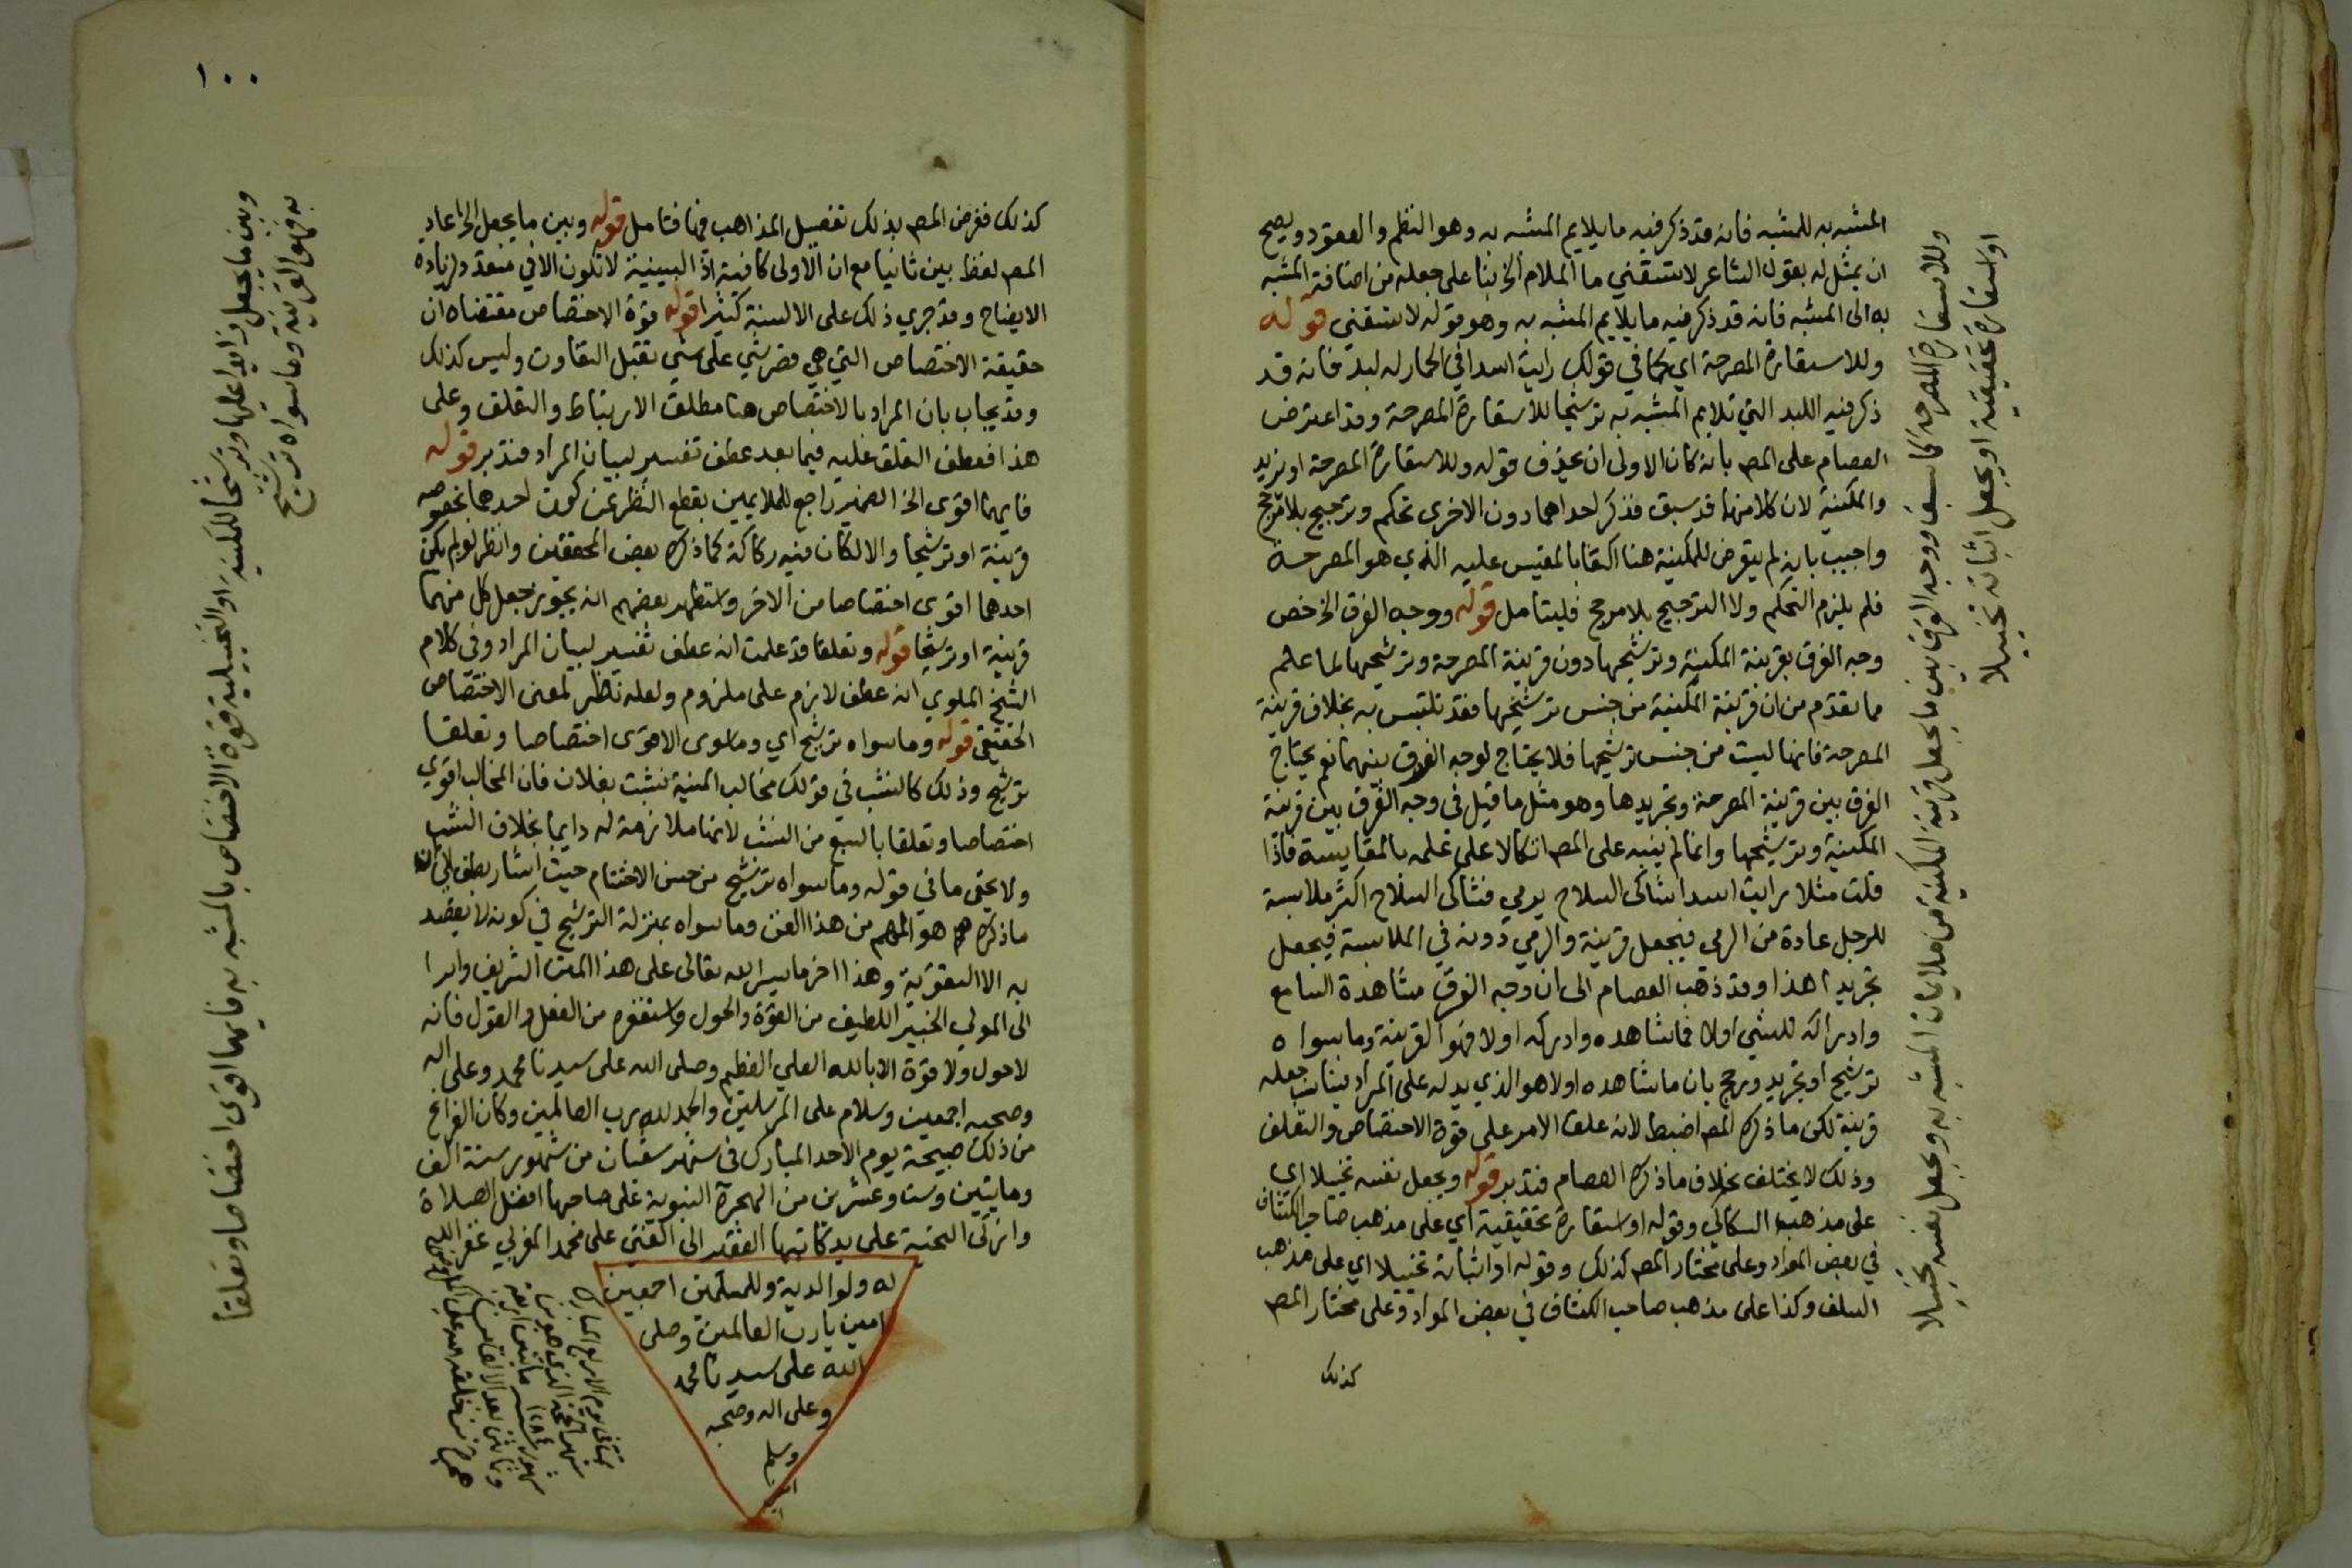 المشبه به للمشبه فانه قد ذكر فيه ما يلايم المشبه به وهو النظم والعقود ويصح
ان يمثل له بقول الشاعر لا تسقني ما الملام الخ بنا على جعله من اضافة المشبه
به الى المشبه فانه قد ذكر فيه ما يلايم المشبه به وهو قوله لا تسقني قوله
وللاستعارة المصرحة اي كما في قولك رايت اسدا في الحمار له لبد فانه قد
ذكر فيه اللبد التي تلايم المشبه به ترشيحا للاستعارة المصرحة وقد اعترض
العصام على المص بانه كان الاولى ان يحذف قوله وللاستعارة المصرحة او يزيد
والمكنية لان كلا منهما قد سبق فذكر احداهما دون الاخرى تحكم وترجيح بلا مرجح
واجيب بانه لم يتعرض للمكنية هنا اكتفا بالمقيس عليه الذي هو المصرحة
فلم يلزم التحكم ولا الترجيح بلا مرجح فليتامل قوله ووجه الفرق الخ خص
وجه الفرق بقرينة المكنية وترشيحها دون قرينة المصرحة وترشيحها لما علم
مما تقدم من ان قرينة المكنية من جنس ترشيحها فقد تلتبس به بخلاف قرينة
المصرحة فانها ليست من جنس ترشيحها فلا يحتاج لوجه الفرق بينهما نعم يحتاج
الفرق بين قرينة المصرحة وتجريدها وهو مثل ما قيل في وجه الفرق بين قرينة
المكنية وترشيحها وانما لم ينبه على المص اتكالا على علمه بالمقايسة فاذا
قلت مثلا رايت اسدا شاكى السلاح يرمي فشاكى السلاح اكثر ملابسة
للرجل عادة من الرمى فيجعل قرينة والرمي دونه في الملابسة فيجعل
تجريدا هذا وقد ذهب العصام الى ان وجه الفرق مشاهدة السامع
وادراكه للشي اولا فما شاهده وادركه اولا فهو القرينة وما سواه
ترشيح او تجريد ورجح بان ما شاهده اولا هو الذي يدله على المراد فيناسب جعله
قرينة لكن ما ذكره المص اضبط لانه علق الامر على قوة الاختصاص والتعلق
وذلك لا يختلف بخلاف ما ذكره العصام فتدبر قوله ويجعل نفسه تخييلا اي
على مذهب السكاكي وقوله او استعارة تحقيقية اي على مذهب صاحب الكشاف
في بعض المواد وعلى مختار المص كذلك وقوله او اثباته تخييلا اي على مذهب
السلف وكذا على مذهب صاحب الكشاف في بعض المواد وعلى مختار المص
كذلك
وللاستعارة المصرحة كما سبق ووجه الفرق بين ما يجعل قرينة المكنية من ملايمات المشبه به ويجعل نفسه تخييلا
او استعارة تحقيقية او يجعل اثباته تخييلا
١٠٠
كذلك ففرض المص بذلك تفصيل المذاهب فيها فتامل قوله وبين ما يجعل الخ اعاد
المص لفظ بين ثانيا مع ان الاولى كافية اذ البينية لا تكون الا في متعدد لزيادة
الايضاح وقد جرى ذلك على الالسنة كثيرا قوله قوة الاختصاص مقتضاه ان
حقيقة الاختصاص التي هي قصر شي على شي تقبل التفاوت وليس كذلك
وقد يجاب بان المراد بالاختصاص هنا مطلق الارتباط والتعلق وعلى
هذا فعطف التعلق عليه فيما بعد عطف تفسير لبيان المراد فتدبر قوله
فايهما اقوى الخ الضمير راجع للملايمين بقطع النظر عن كون احدهما بخصوصه
قرينة او ترشيحا والا لكان فيه ركاكة كما ذكره بعض المحققين وانظر لو لم يكن
احدهما اقوى اختصاصا من الاخر واستظهر بعضهم انه يجوز جعل كل منهما
قرينة او ترشيحا قوله وتعلقا قد علمت انه عطف تفسير لبيان المراد وفي كلام
الشيخ الملوي انه عطف لازم على ملزوم ولعله نظر لمعنى الاختصاص
الحقيقي قوله وما سواه ترشيح اي وما سوى الاقوى اختصاصا وتعلقا
ترشيح وذلك كالنشب في قولك مخالب المنية نشبت بفلان فان المخالب اقوي
اختصاصا وتعلقا بالسبع من النشب لانها ملازمة له دايما بخلاف النشب
ولا يخفى ما في قوله وما سواه ترشيح من حسن الاختتام حيث اشار بطرف الى ان
ما ذكره هو المهم من هذا الفن وما سواه بمنزلة الترشيح في كونه لا يقصد
به الا التقوية وهذا اخر ما يسر الله تعالى على هذا المتن الشريف وابرا
الى المولي الخبير اللطيف من القوة والحول واستغفره من الفعل والقول فانه
لا حول ولا قوة الا بالله العلي العظيم وصلى الله على سيدنا محمد وعلى اله
وصحبه اجمعين وسلام على المرسلين والحمد لله رب العالمين وكان الفراغ
من ذلك صبيحة يوم الاحد المبارك في شهر شعبان من شهور سنة الف
ومايتين وست وعشرين من الهجرة النبوية على صاحبها افضل الصلاة
وازكى التحية على يد كاتبها الفقير الى الغني على محمد المغربي غفر الله
له ولوالديه وللمسلمين اجمعين
امين يا رب العالمين وصلى
الله على سيدنا محمد
وعلى اله وصحبه
وسلم
امين
يوم الاربع المبارك
شهر الحجة الذي هو من
شهور سنة ١٢٨٤ مايتين اربعة
وثمانين بعد الالف
وبين ما يجعل زايدا عليها وترشيحا للمكنية او التخييلية قوة الاختصاص بالمشبه به فايهما اقوى اختصاصا وتعلقا
به فهو القرينة وما سواه ترشيح